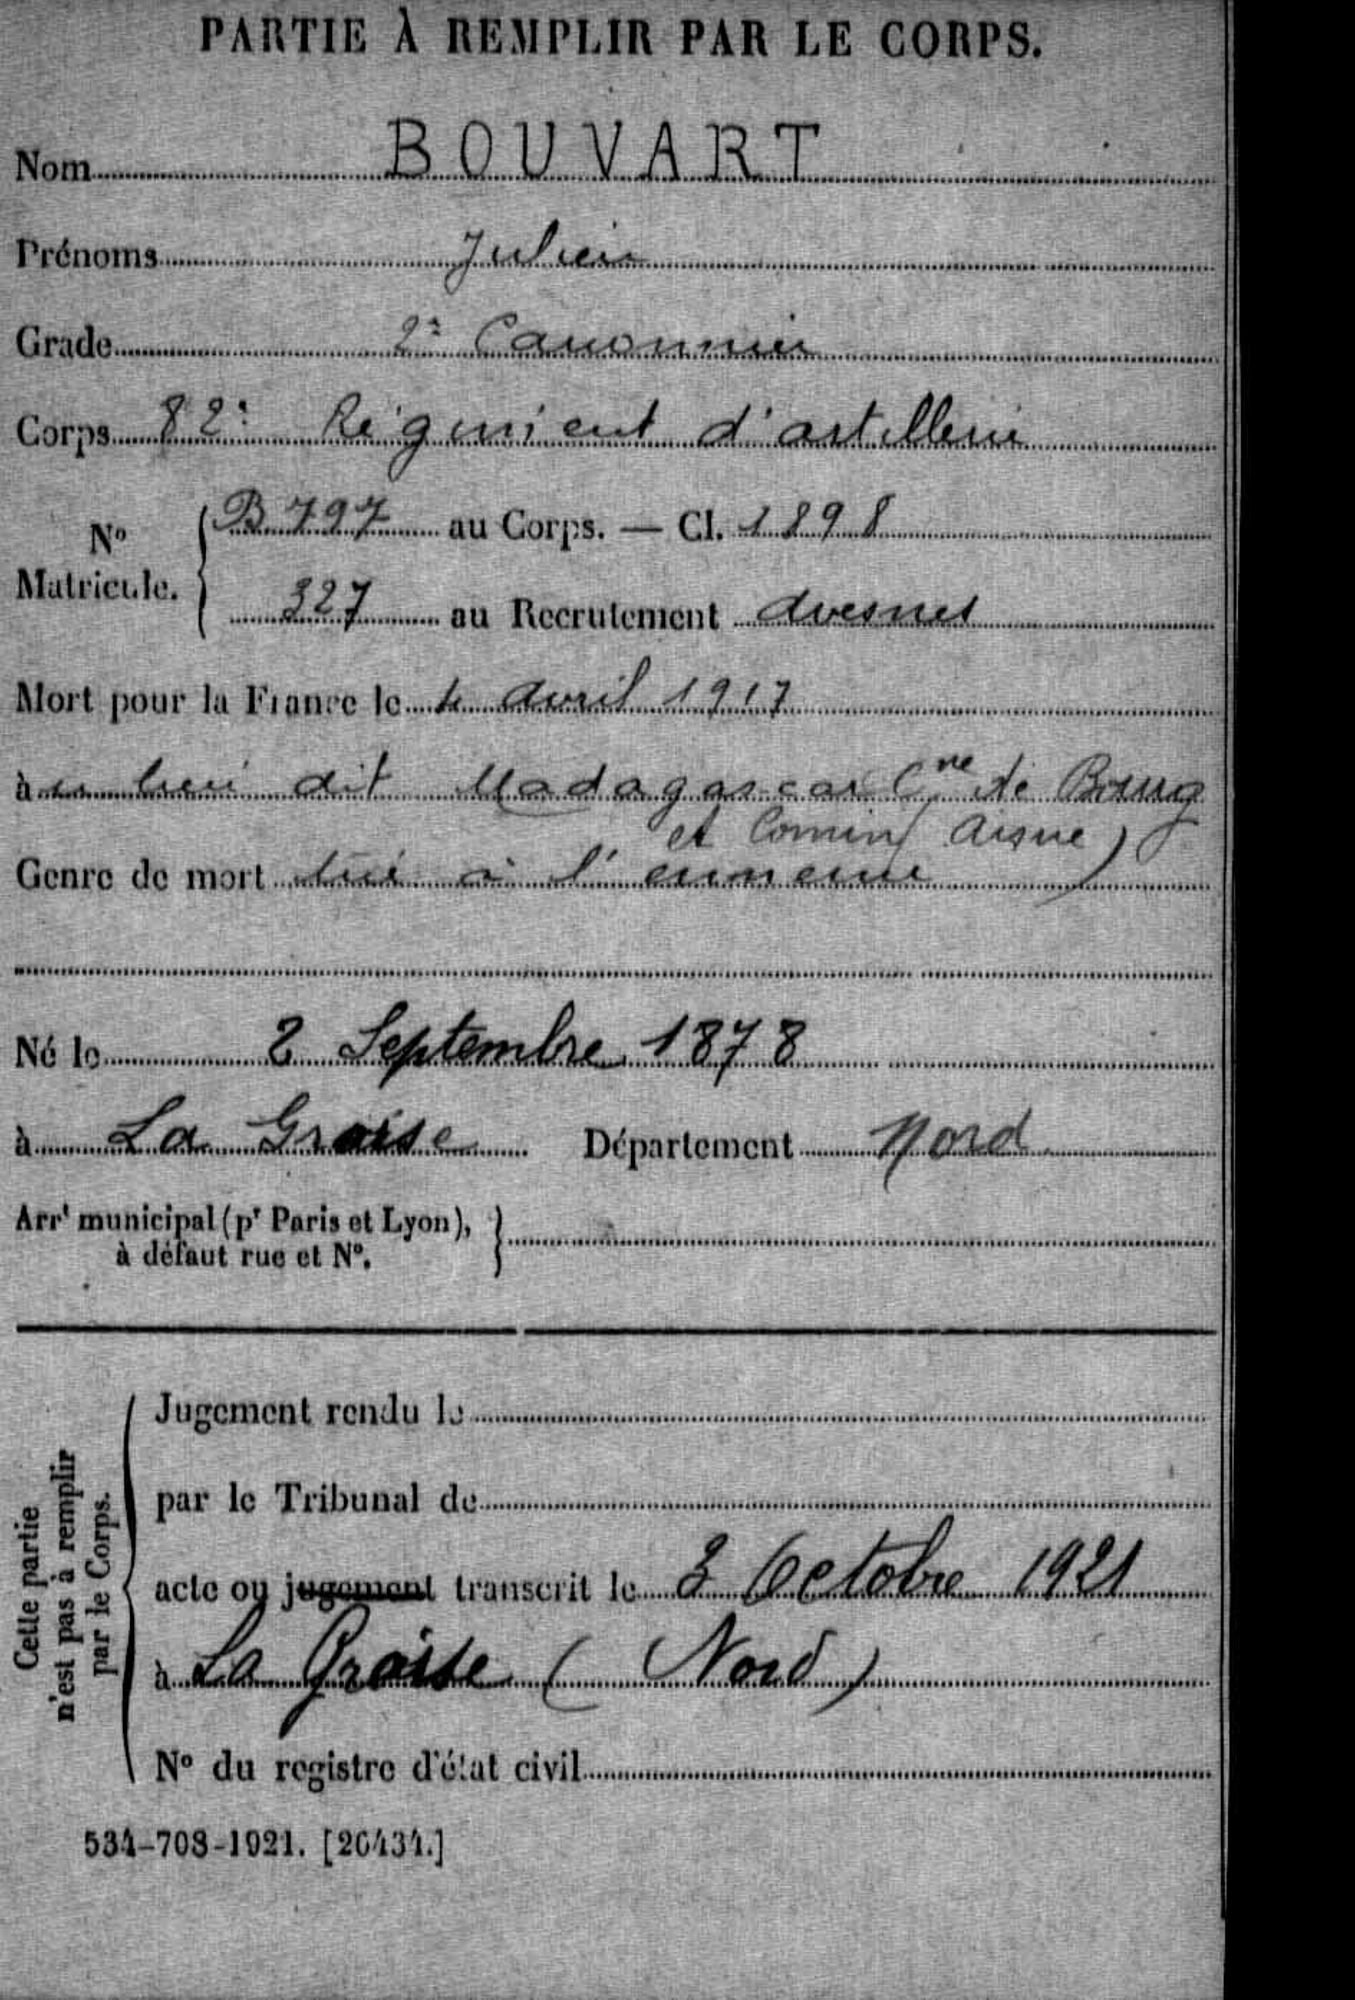 PARTIE À REMPLIR PAR LE CORPS.
Nom BOUVART
Prénoms Julien
Grade 2e Canonnier
Corps 82e Régiment d'artillerie
No Matricule. B 797 au Corps. — Cl. 1898
327 au Recrutement Avesnes
Mort pour la France le 4 Avril 1917
à u lieu dit Madagascar Cne de Bourg
et Comin (Aisne)
Genre de mort tué à l'ennemi
Né le 2 Septembre 1878
à La Groise Département Nord
Arrt municipal (pr Paris et Lyon),
à défaut rue et No.
Cette partie
n'est pas à remplir
par le Corps.
Jugement rendu le
par le Tribunal de
acte ou jugement transcrit le 3 Octobre 1921
à La Groise (Nord)
No du registre d'état civil
534-708-1921. [26434.]